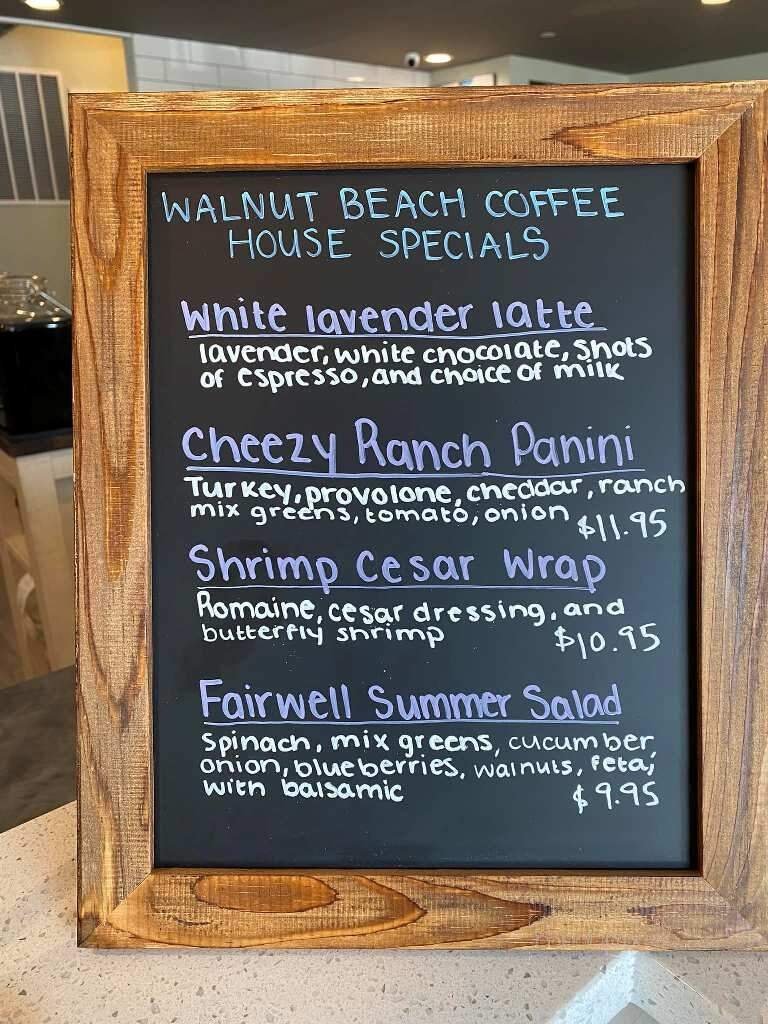 WALNUT BEACH COFFEE
HOUSE SPECIALS
White lavender latte
lavender, white chocolate, shots
of espresso, and choice of milk
Cheezy Ranch Panini
Turkey, provolone, cheddar, ranch
mix greens, tomato, onion $11.95
Shrimp Cesar Wrap
Romaine, cesar dressing, and
butterfly shrimp $10.95
Fairwell Summer Salad
Spinach, mix greens, cucumber,
onion, blueberries, walnuts, feta,
with balsamic $9.95